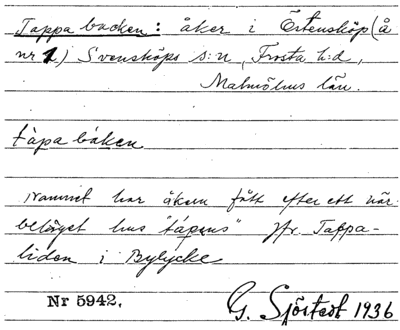 Tappa backen: åker i Östensköp (å
nr 1) Svensköps s:n, Frosta h:d,
Malmöhus län.
tápa báken
Namnet har åkern fått efter ett när-
beläget hus "tápens" jfr. Tappa-
liden i Bylycke
Nr 5942.
G. Sjöstedt 1936